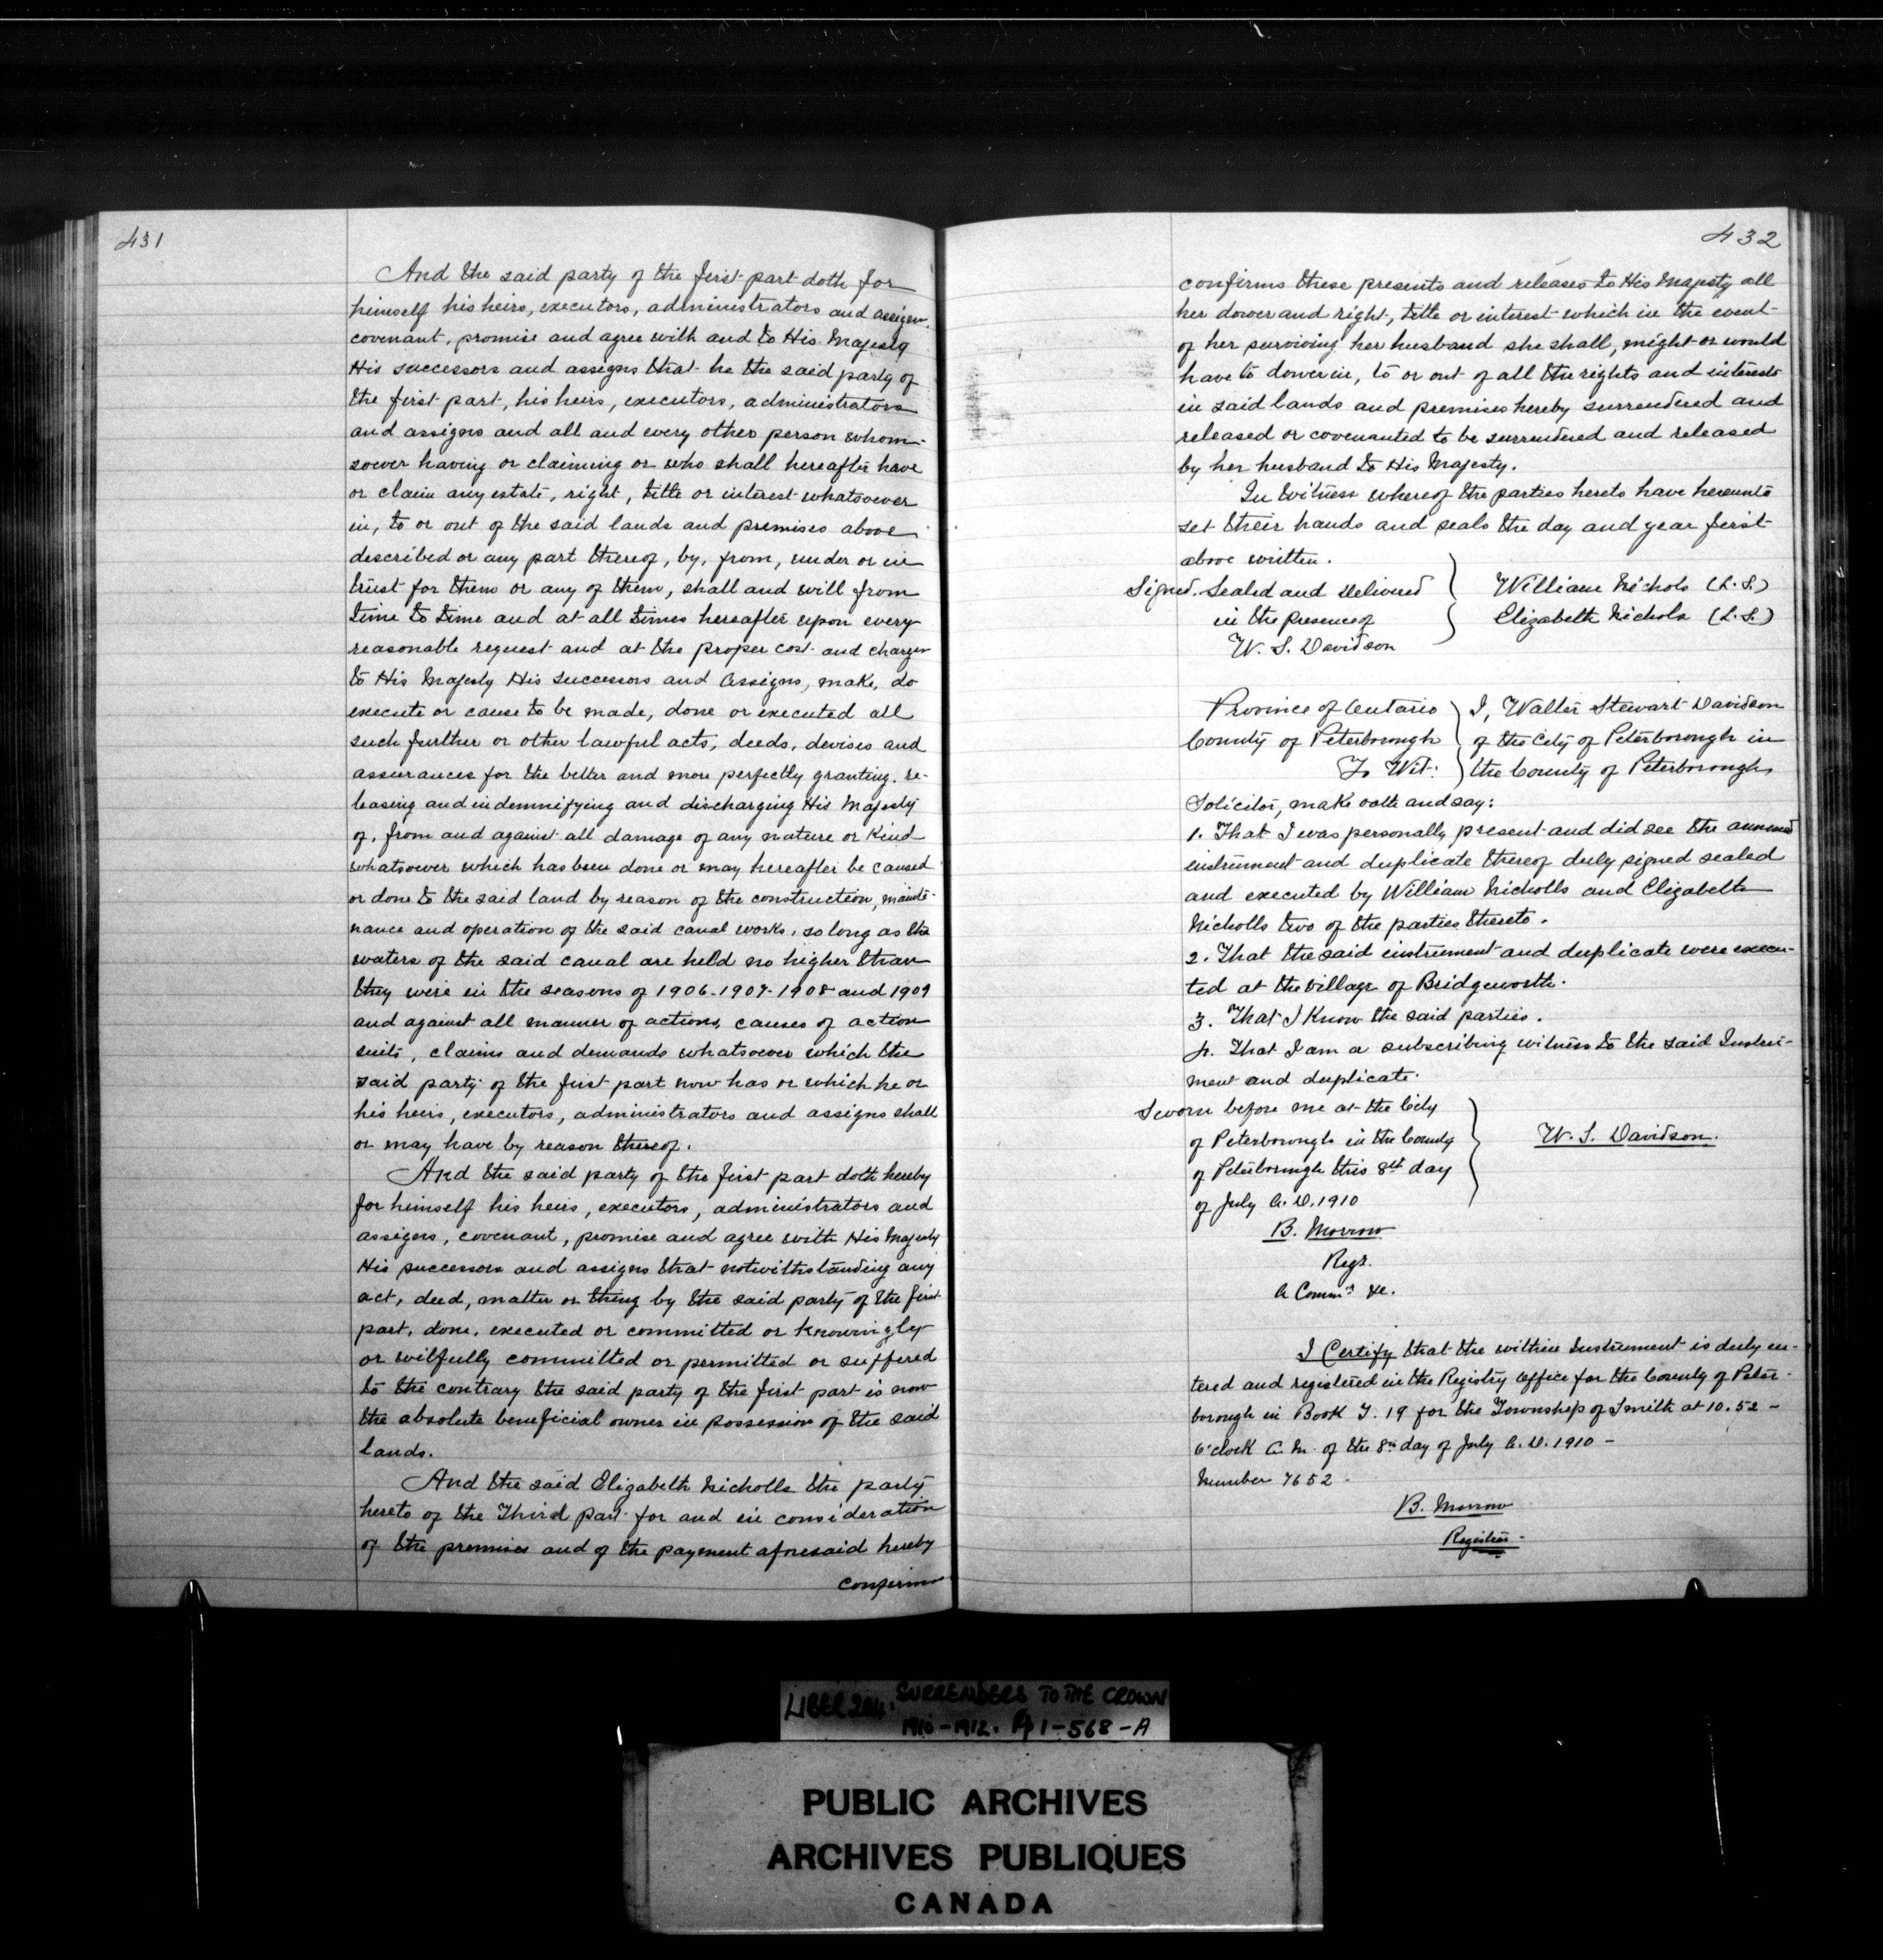 431
And the said party of the first part doth for
himself his heirs, executors, administrators and assigns
covenant, promise and agree with and to His Majesty
His successors and assigns that he the said party of
the first part, his heirs, executors, administrators
and assigns and all and every other person whom-
soever having or claiming or who shall hereafter have
or claim any estate, right, title or interest whatsoever
in, to or out of the said lands and premises above
described or any part thereof, by, from, under or in
trust for them or any of them, shall and will from
time to time and at all times hereafter upon every
reasonable request and at the proper cost and charges
to His Majesty His successors and Assigns, make, do
execute or cause to be made, done or executed all
such further or other lawful acts, deeds, devises and
assurances for the better and more perfectly granting, re-
leasing and indemnifying and discharging His Majesty
of, from and against all damage of any nature or kind
whatsoever which has been done or may hereafter be caused
or done to the said land by reason of the construction, mainte-
nance and operation of the said canal works, so long as the
waters of the said canal are held no higher than
they were in the seasons of 1906-1907-1908 and 1909
and against all manner of actions, causes of action
suits, claims and demands whatsoever which the
said party of the first part now has or which he or
his heirs, executors, administrators and assigns shall
or may have by reason thereof.
And the said party of the first part doth hereby
for himself his heirs, executors, administrators and
assigns, covenant, promise and agree with His Majesty
His successors and assigns that notwithstanding any
act, deed, matter or thing by the said party of the first
part, done, executed or committed or knowingly
or wilfully committed or permitted or suffered
to the contrary the said party of the first part is now
the absolute beneficial owner in possession of the said
lands.
And the said Elizabeth Nicholls the party
hereto of the Third part for and in consideration
of the premises and of the payment aforesaid hereby
confirms
432
confirms these presents and releases to His Majesty all
her dower and right, title or interest which in the event
of her surviving her husband she shall, might or would
have to dower in, to or out of all the rights and interests
in said lands and premises hereby surrendered and
released or covenanted to be surrendered and released
by her husband to His Majesty.
In Witness whereof the parties hereto have hereunto
set their hands and seals the day and year first
above written.
Signed. Sealed and Delivered
in the presence of
W. S. Davidson
William Nichols (L.S.)
Elizabeth Nichols (L.S.)
Province of Ontario
County of Peterborough
To Wit:
I, Walter Stewart Davidson
of the City of Peterborough in
the County of Peterborough,
Solicitor, make oath and say:
1. That I was personally present and did see the annexed
instrument and duplicate thereof duly signed sealed
and executed by William Nicholls and Elizabeth
Nicholls two of the parties thereto.
2. That the said instrument and duplicate were execu-
ted at the Village of Bridgeworth.
3. That I know the said parties.
4. That I am a subscribing witness to the said Instru-
ment and duplicate.
Sworn before me at the City
of Peterborough in the County
of Peterborough this 8th day
of July A.D. 1910
W. S. Davidson.
B. Morrow
Regr.
A Commr &c.
I Certify that the within Instrument is duly en-
tered and registered in the Registry Office for the County of Peter-
borough in Book T. 19 for the Township of Smith at 10.52 -
o'clock A.M. of the 8th day of July A.D. 1910 -
Number 7652 -
B. Morrow
Registrar -
LIBER 204. SURRENDERS TO THE CROWN
1910-1912. Pg 1-568-A
PUBLIC ARCHIVES
ARCHIVES PUBLIQUES
CANADA